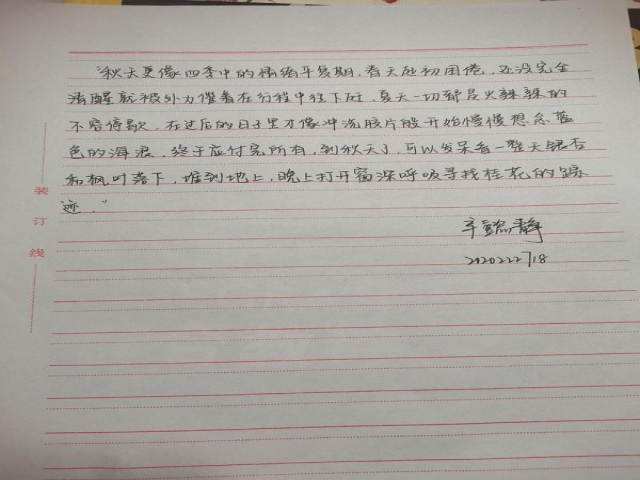 “秋天更像四季中的情绪平复期，春天起初困倦，还没完全
清醒就被外力催着在行程中往下赶，夏天一切都是火辣辣的
不容停歇，在过后的日子里才像冲洗胶片般开始慢慢想念蓝
色的海浪，终于应付完所有，到秋天了，可以发呆看一整天银杏
和枫叶落下，堆到地上，晚上打开窗深呼吸寻找桂花的踪
迹。”
静
装
订
线